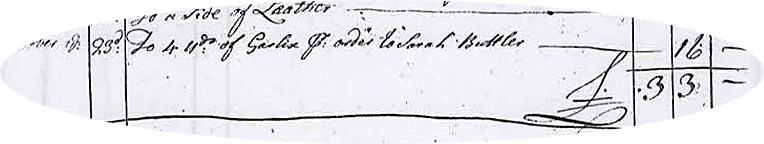 To a Side of Leather
23d. To 4 yds of Garlix pr. order to Sarah Buttler — 16 —
£. 3 3 —